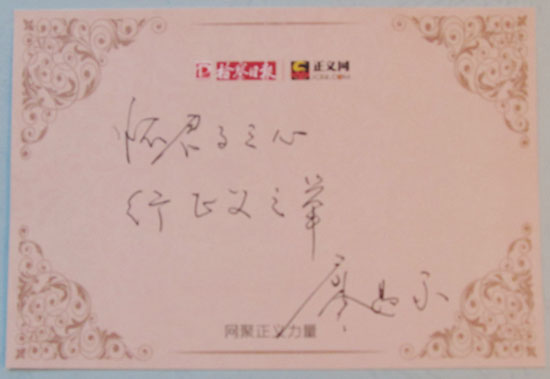 检察日报 正义网
JCRB.COM
怀君子之心
行正义之举
廖
网聚正义力量